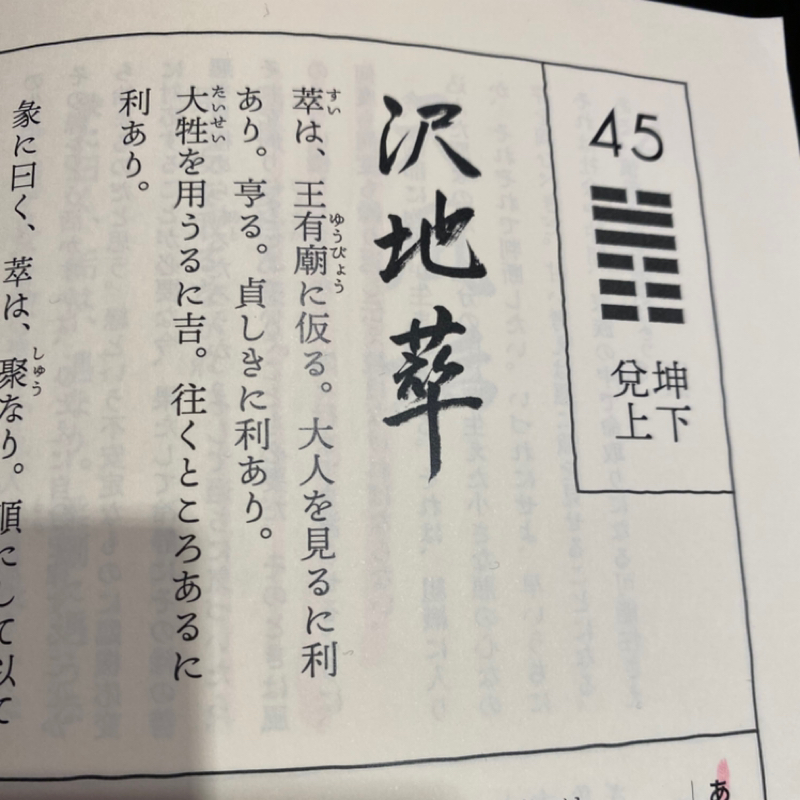 45
坤下
兌上
沢地萃
萃は、王有廟に仮る。大人を見るに利
すい
ゆうびょう
あり。亨る。貞しきに利あり。
大牲を用うるに吉。往くところあるに
たいせい
利あり。
彖に曰く、萃は、聚なり。順にして以て
しゅう
あ